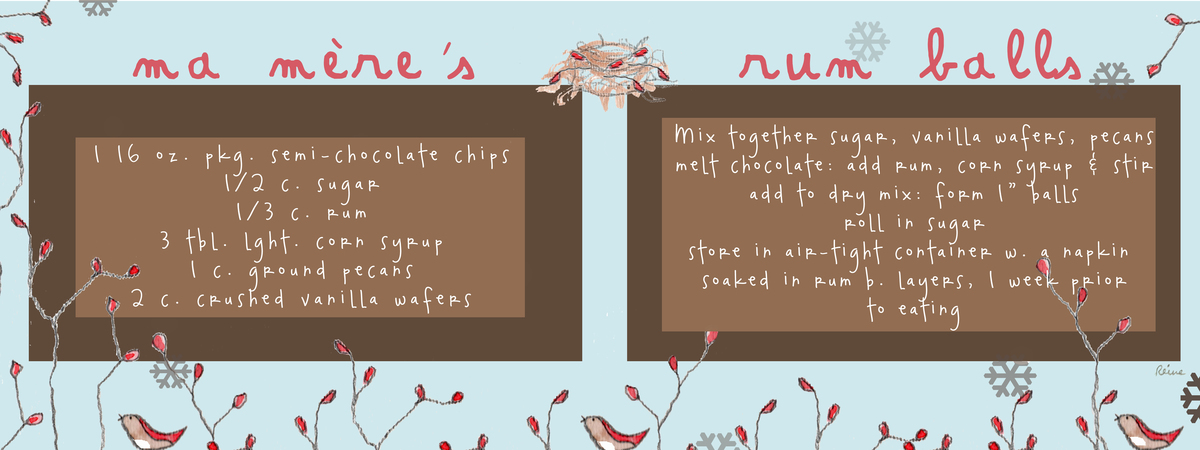 ma mère's rum balls
1 16 oz. pkg. semi-chocolate chips
1/2 c. sugar
1/3 c. rum
3 tbl. lght. corn syrup
1 c. ground pecans
2 c. crushed vanilla wafers
Mix together sugar, vanilla wafers, pecans
melt chocolate: add rum, corn syrup & stir
add to dry mix: form 1" balls
roll in sugar
store in air-tight container w. a napkin
soaked in rum b. layers, 1 week prior
to eating
Reine